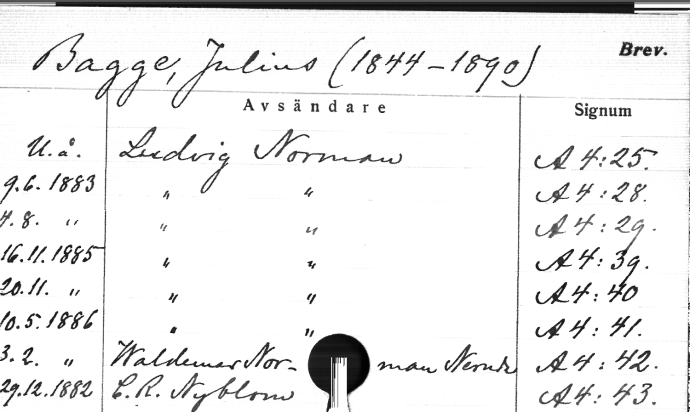 Bagge, Julius (1844-1890) Brev.
Avsändare Signum
U. å. Ludvig Norman A 4:25.
9.6. 1883 " " A 4:28.
4.8. " " " A 4:29.
16.11. 1885 " " A 4:39.
20.11. " " " A 4:40
10.5. 1886 " " A 4:41.
3.2. " Waldemar Nor- man A 4:42.
29.12.1882 C. R. Nyblom A 4:43.